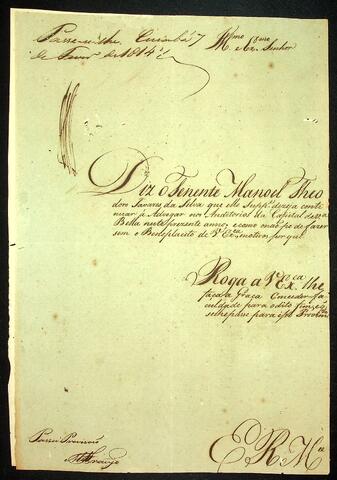 Passe-se-lhe. Cuiabá 7
de Fevr.º de 1814
Ill.mo e Ex.mo Senhor
Diz o Tenente Manoel Theo
doro Tavares da Silva que elle Supp.e dezeja conti
nuar á Advogar nos Auditorios da Capital de
Bella neste prezente anno, e como o não pode fazer
sem o Beneplacito de V. Ex.ca motivo por que
P. a V. Ex.ca lhe
faça a Graça Conceder fa
culdade para o dito fim, e q
se lhe passe para isso Provizm
E R. M.ce
Passei Provizão
Araujo